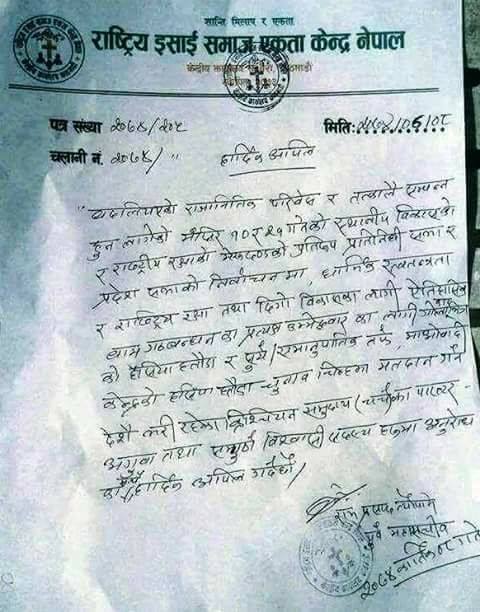 शान्ति मिलाप र एकता
राष्ट्रिय इसाई समाज एकता केन्द्र नेपाल
केन्द्रीय कार्यालय
पत्र संख्या २०७४/७५
मिति:
चलानी नं. २०७४/ "
हार्दिक अपिल
राजनितिक परिवेश र तत्काल सम्पन्न
हुन लागेको मंसिर १० र २१ गतेको स्थानीय विकासको
र राष्ट्रिय रक्षाको प्रतिनिधी सभा र
प्रदेश सभाको निर्वाचनमा, धार्मिक स्वतन्त्रता
र राष्ट्रिय रक्षा तथा दिगो विकासका लागी ऐतिहासिक
बाम गठबन्धन का प्रत्यक्ष उम्मेद्वार का लागी
को हँसिया हतौडा र समानुपातिक तर्फ माओवादी
केन्द्रको हँसिया हतौडा चुनाव चिन्हमा मतदान गर्न
देशै भरी रहेका क्रिश्चियन समुदाय (चर्च)का पास्टर
अगुवा तथा सम्पूर्ण विश्वासी सदस्य हरुमा अनुरोध
हार्दिक अपिल गर्दछौं।
राम प्रसाद
पूर्व महासचिव
२०७४ कार्तिक गते